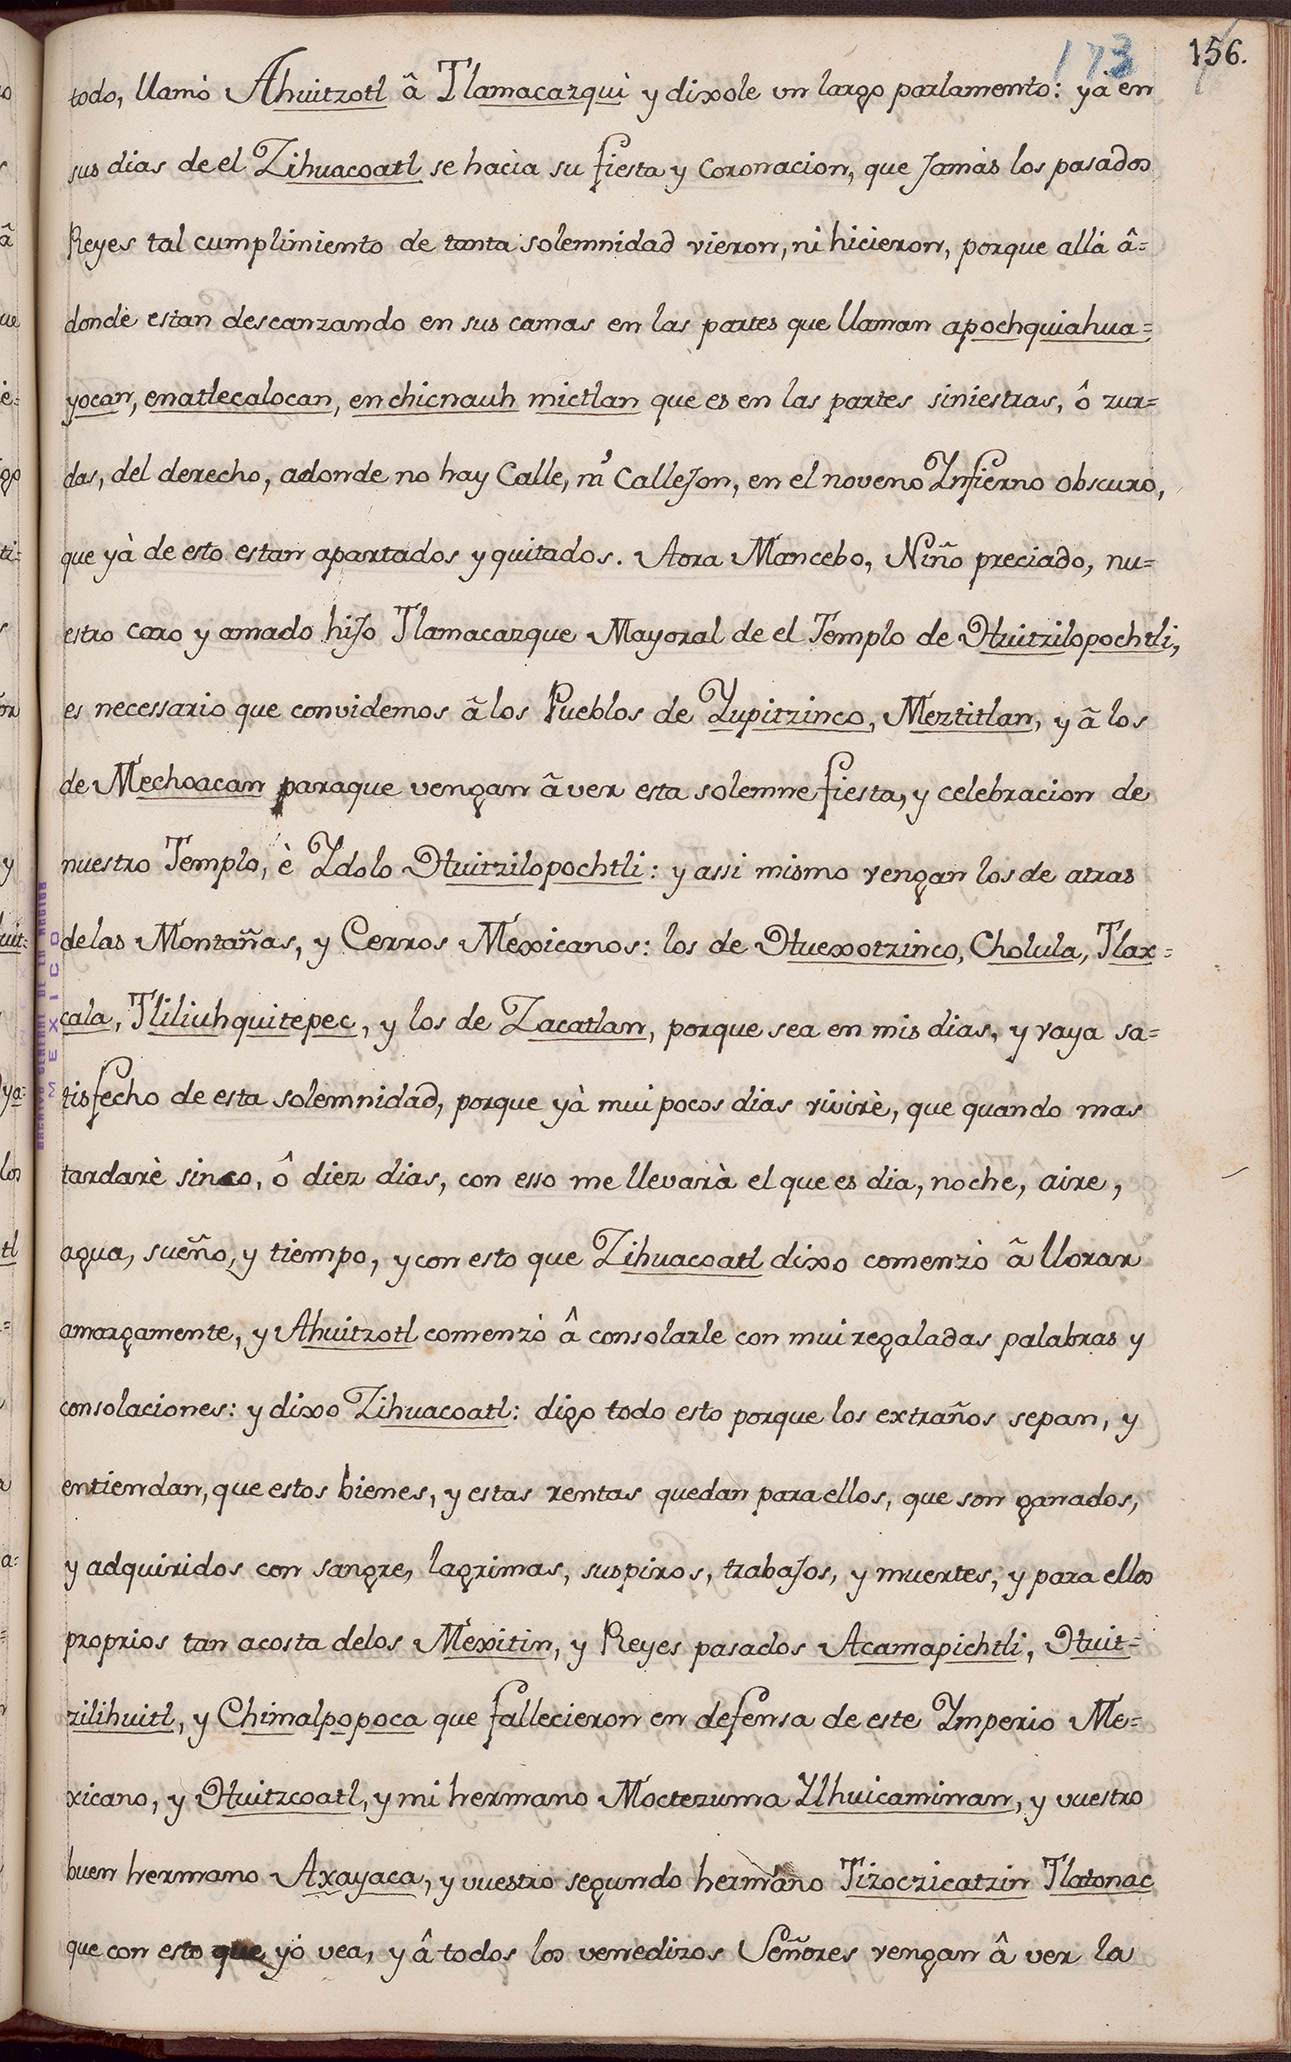 173 156.
todo, llamò Ahuitzotl â Tlamacazqui y dixole vn largo parlamento: yà en
sus dias de el Zihuacoatl se hacia su fiesta y Coronacion, que Jamàs los pasados
Reyes tal cumplimiento de tanta solemnidad vieron, ni hicieron, porque allà â=
donde estan descanzando en sus camas en las partes que llaman apochquiahua=
yocan, enatlecalocan, en chicnauh mictlan que es en las partes siniestras, ô zur=
das, del derecho, adonde no hay Calle, ni CalleJon, en el noveno Ynfierno obscuro,
que yà de esto estan apartados y quitados. Aora Mancebo, Niño preciado, nu=
estro caro y amado hiJo Tlamacazque Mayoral de el Templo de Huitzilopochtli,
es necessario que convidemos â los Pueblos de Yupitzinco, Meztitlan, y â los
de Mechoacan paraque vengan â ver esta solemne fiesta, y celebracion de
nuestro Templo, è Ydolo Huitzilopochtli: y assi mismo vengan los de atras
delas Montañas, y Cerros Mexicanos: los de Huexotzinco, Cholula, Tlax=
cala, Tliliuhquitepec, y los de Zacatlan, porque sea en mis dias, y vaya sa=
tisfecho de esta solemnidad, porque yà mui pocos dias vivirè, que quando mas
tardarè sinco, ô diez dias, con esso me llevarà el que es dia, noche, aire,
agua, sueño, y tiempo, y con esto que Zihuacoatl dixo comenzò â llorar
amargamente, y Ahuitzotl comenzò â consolarle con mui regaladas palabras y
consolaciones: y dixo Zihuacoatl: digo todo esto porque los extraños sepan, y
entiendan, que estos bienes, y estas rentas quedan para ellos, que son ganados,
y adquiridos con sangre, lagrimas, suspiros, trabaJos, y muertes, y para ellos
proprios tan acosta delos Mexitin, y Reyes pasados Acamapichtli, Huit=
zilihuitl, y Chimalpopoca que fallecieron en defensa de este Ymperio Me=
xicano, y Huitzcoatl, y mi hermano Moctezuma Ylhuicaminan, y vuestro
buen hermano Axayaca, y vuestro segundo hermano Tizoczicatzin Tlatonac
que con esto que yo vea, y â todos los venedizos Señores vengan â ver la
ARCHIVO GENERAL DE LA NACION
MEXICO